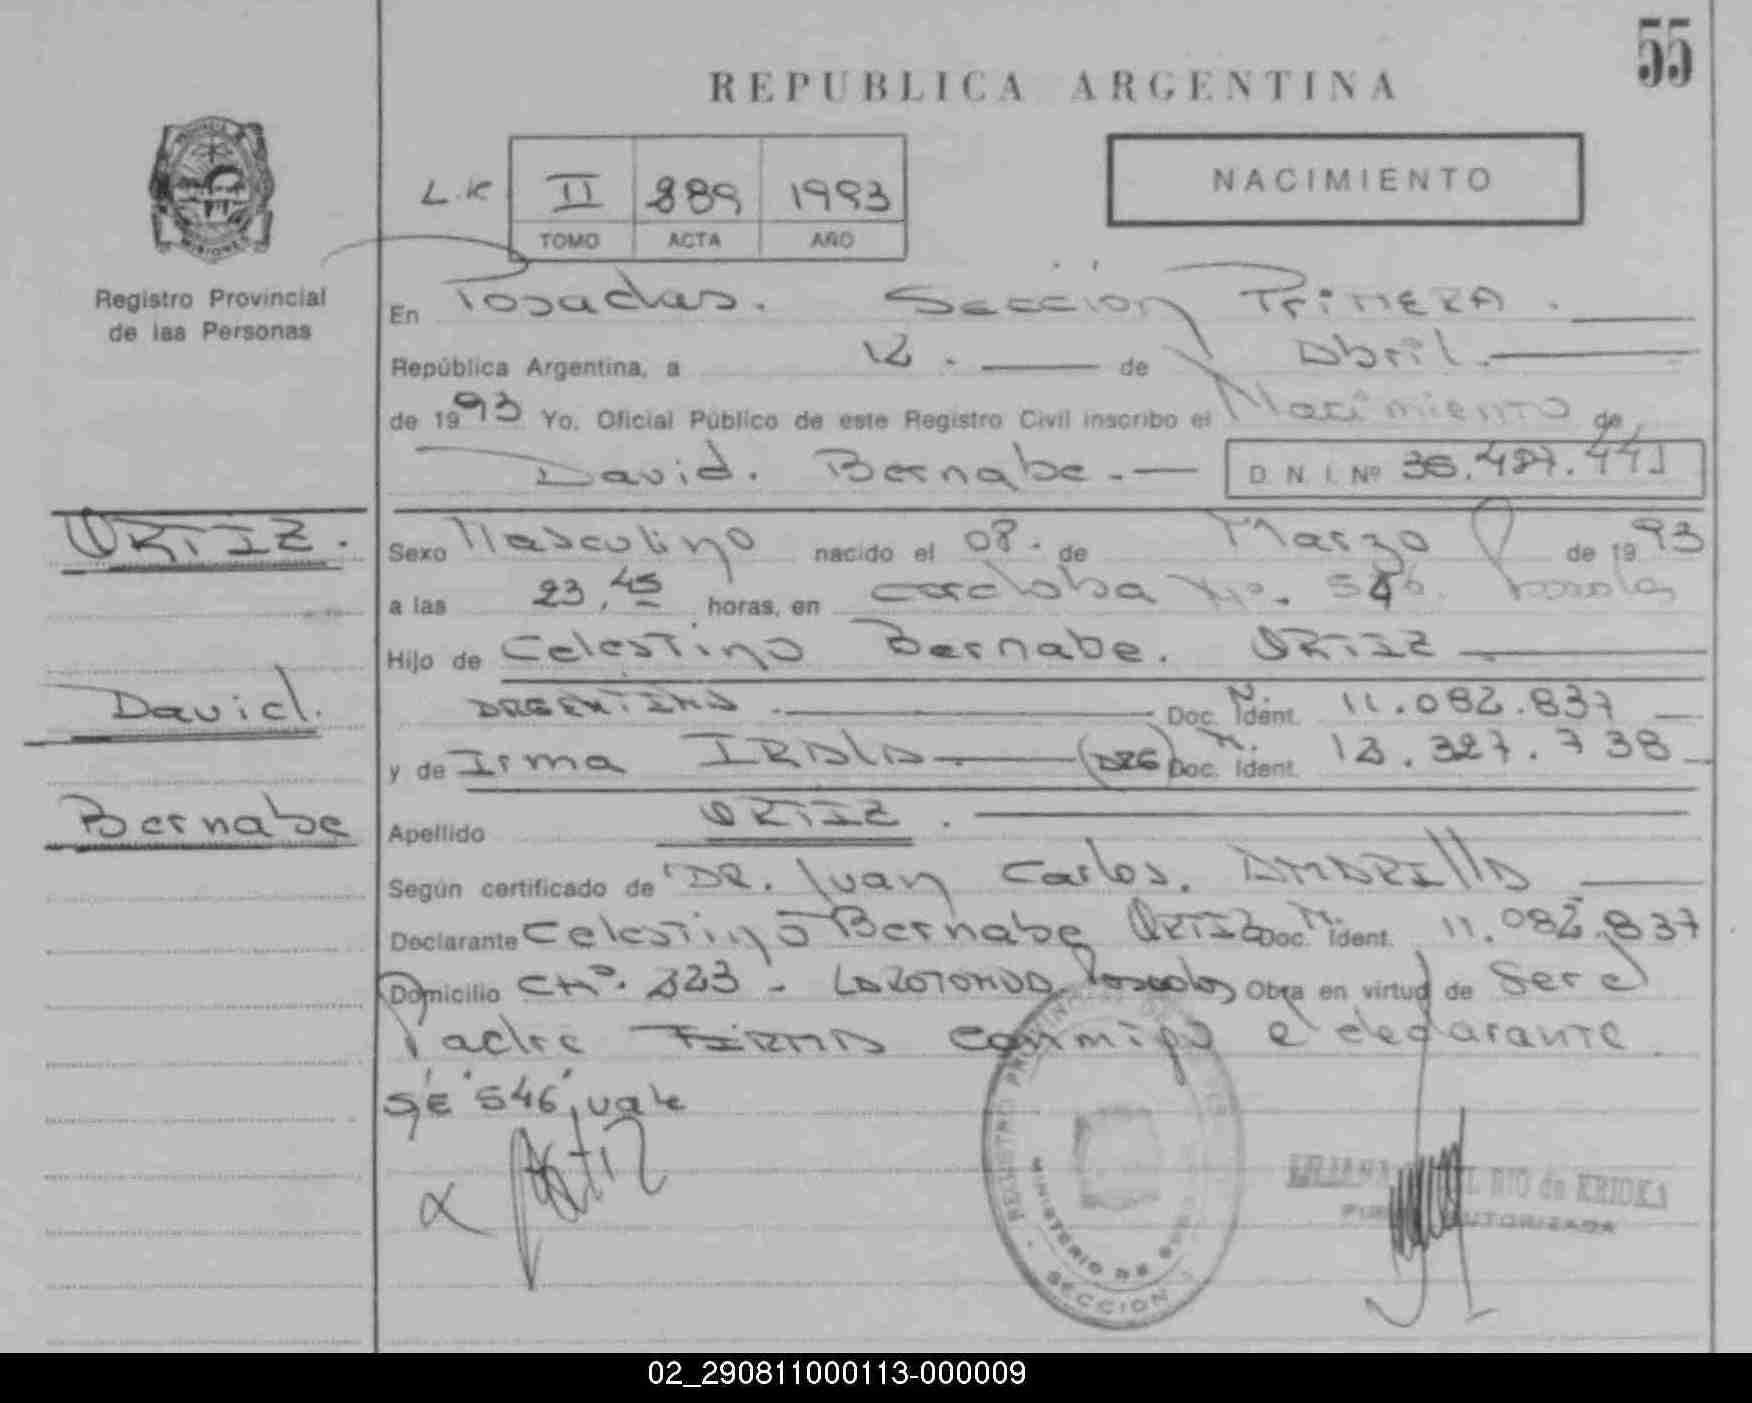 55
REPUBLICA ARGENTINA
NACIMIENTO
II 889 1993
TOMO ACTA AÑO
Registro Provincial
de las Personas
En Posadas. Sección Primera.
República Argentina, a 12. de Abril.
de 1993 Yo, Oficial Público de este Registro Civil inscribo el Nacimiento de
David. Bernabe. D. N. I. Nº
ORTIZ.
Sexo Masculino nacido el 08. de Marzo de 1993
a las 23,45 horas, en Cordoba Nº. Posadas
Hijo de Celestino Bernabe. ORTIZ
David.
ARGENTINA Doc. Ident. N. 11.082.837
y de Irma IRALA (ARG) Doc. Ident. N. 13.327.738
Bernabe
Apellido ORTIZ.
Según certificado de DR. Juan Carlos. AMARILLA
Declarante Celestino Bernabe ORTIZ Doc. Ident. N. 11.082.837
Domicilio CHº. 323 - LA ROTONDA Posadas Obra en virtud de Ser el
Padre FIRMA conmigo el declarante
S/E "546", vale
Ortiz
REGISTRO PROVINCIAL DE LAS
MINISTERIO DE
SECCION
RIO de KRIDKA
AUTORIZADA
02_290811000113-000009